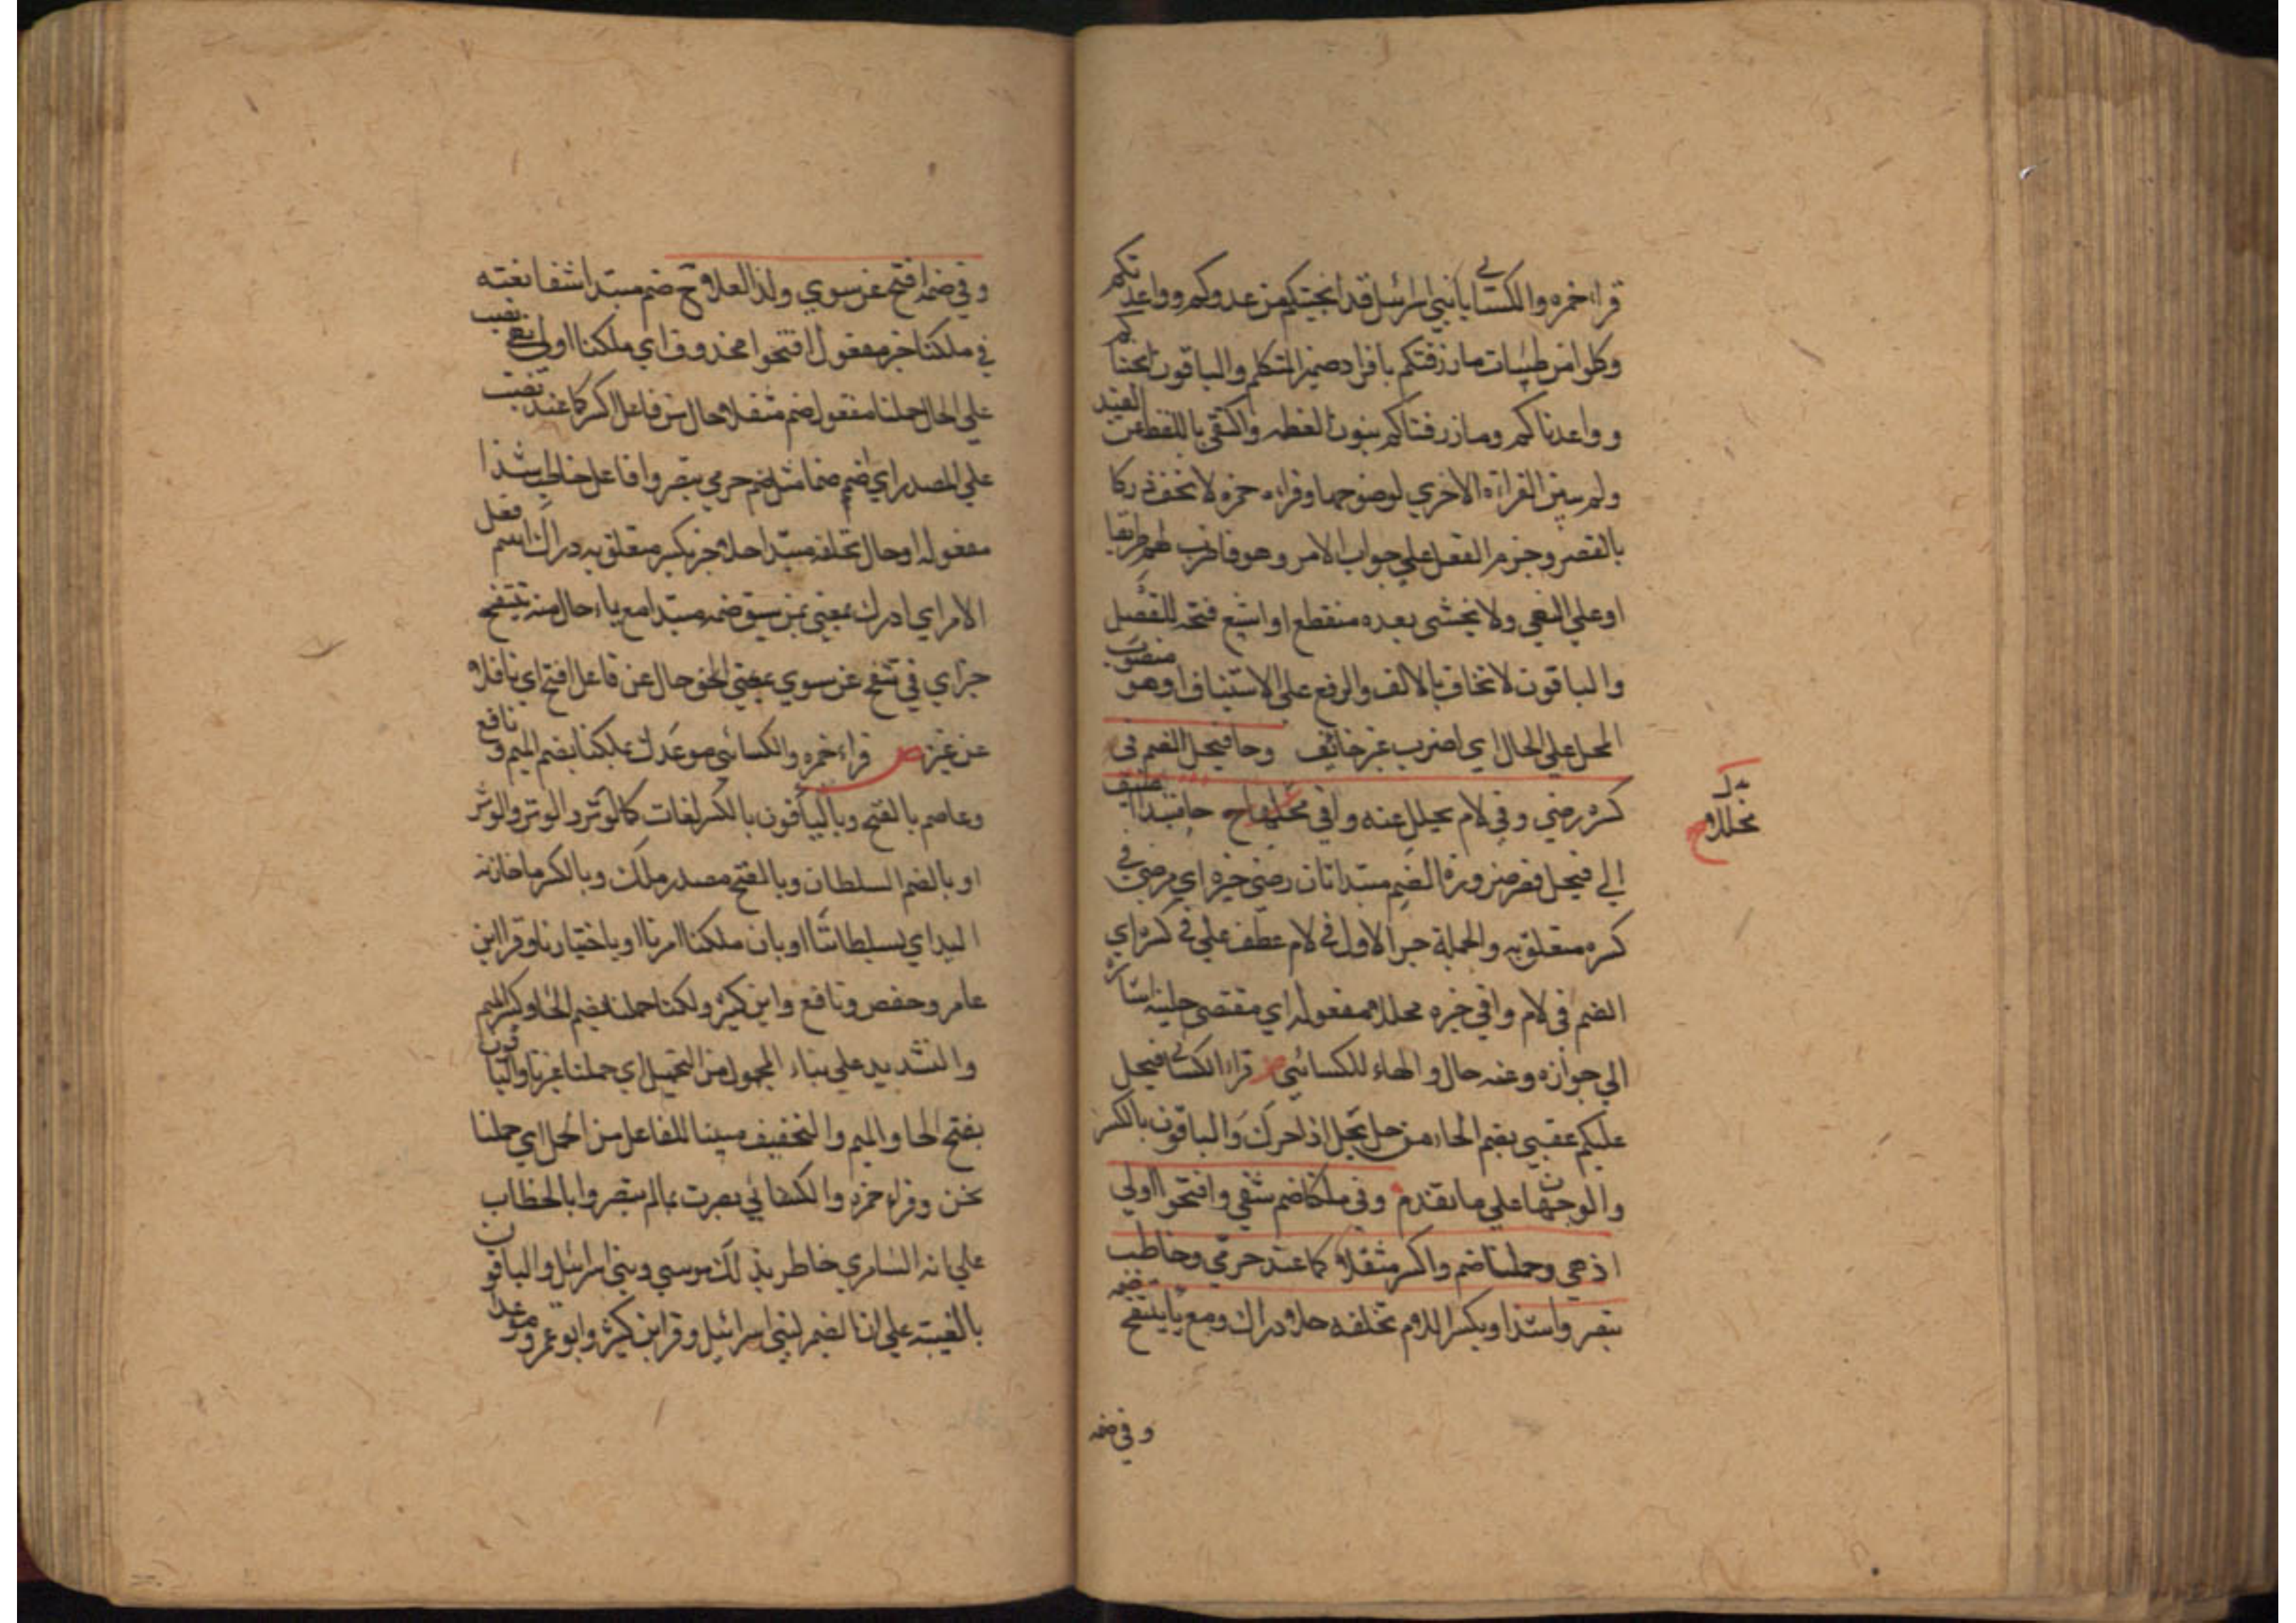 قراء حمزه والكسائي يا بني اسرائيل قد انجيتكم من عدوكم وواعدتكم
وكلوا من طيبات ما رزقتكم بافراد ضمير المتكلم والباقون انجيناكم
وواعدناكم وما رزقناكم بنون العظمه واكتفى باللفظ عن القيد
ولم يبين القراءة الاخري لوضوحها وقراء حمزه لا تخف دركا
بالقصر وجزم الفعل علي جواب الامر وهو فاضرب لهم طريقا
او علي النهي ولا تخشى بعده منقطع او اشبع فتحه للفصل
والباقون لا تخاف بالالف والرفع على الاستيناف او هو منصوب
المحل علي الحال اي اضرب غير خائف وحا فيحل الضم في
كسره رضي وفي لام يحلل عنه وافي محللا ح حا مبتدا اضيف
الي فيحل قصر ضرورة الضم مبتدا ثان رضي خبره اي مرضي في
كسره متعلق به والجملة خبر الاول في لام عطف علي في كسره اي
الضم في لام وافي خبره محللا مفعوله اي مقتضى حليته اشارة
الي جوازه وعنه حال والهاء للكسائي ص قراء الكسائي فيحل
عليكم غضبي بضم الحاء من حل يحل اذا حرك والباقون بالكسر
والوجهان علي ما تقدم وفي ملكنا ضم شفي وافتحوا اولي
اذ حي وحملنا ضم واكسر مثقلا كما عند حرمي وخاطب
يبصروا شذا وبكسر اللام تخلفه حلا دراك ومع ياء ينفخ ضمه
وفي ضمه
محللا ح
وفي ضمه افتح عن سوي ولد العلا ح ضم مبتدا شفا نعته
في ملكنا خبر مفعول افتحوا محذوف اي ملكنا اولي نهي نصب
علي الحال حملنا مفعول ضم مثقلا حال من فاعل اكسر كما عند نصب
علي المصدر اي ضم ضما مثل ضم حرمي يبصروا فاعل خاطب شذا
مفعوله او حال تخلفه مبتدا حلا خبر بكسر متعلق به دراك اسم فعل
الامر اي ادرك بمعنى من سبق ضمه مبتدا مع ياء حال منه ينفخ
خبر اي في ننفخ عن سوي بمعني الحق حال عن فاعل افتح اي ناقلا
عن غير ص قراء حمزه والكسائي موعدك بملكنا بضم الميم ونافع
وعاصم بالفتح والباقون بالكسر لغات كالوتر والوتر والوتر
او بالضم السلطان وبالفتح مصدر ملك وبالكسر ما حازته
اليد اي بسلطاننا او بان ملكنا امرنا او باختيارنا وقرا ابن
عامر وحفص ونافع وابن كثير ولكنا حملنا بضم الحا وكسر الميم
والتشديد علي بناء المجهول من التحميل اي حملنا غيرنا والباقون
بفتح الحا والميم والتخفيف مبينا للفاعل من الحمل اي حملنا
نحن وقراء حمزه والكسائي بصرت بما لم تبصروا بالخطاب
علي انه السامري خاطر بذلك موسي وبني اسرائيل والباقون
بالغيبته علي ان الضمير لبني اسرائيل وقرا ابن كثير وابو عمرو موعدا